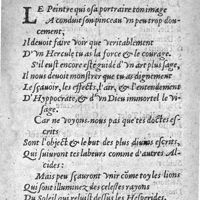 LE Peintre qui osa portraire ton image
A conduit son pinceau 'n peu trop doucement;
Il deuoit faire voir que veritablement
D'vn Hercule tu as la force & le courage.
S'il eust encore esté guidé d'vn art plus sage,
Il nous deuoit monstrer que tu as dignement
Le sçauoir, les effects, l'air, & l'entendement
D'Hypocrate, & d'vn Dieu immortel le visage.
Car ne voyons-nous pas que tes doctes escrits
Sont l'object & le but des plus diuins esprits,
Qui suiuront tes labeurs comme d'autres Alcides:
Mais peu sçauront venir comme toy les lions
Qui sont illuminez des celestes rayons
Du Soleil qui reluist dessus les Hesperides.